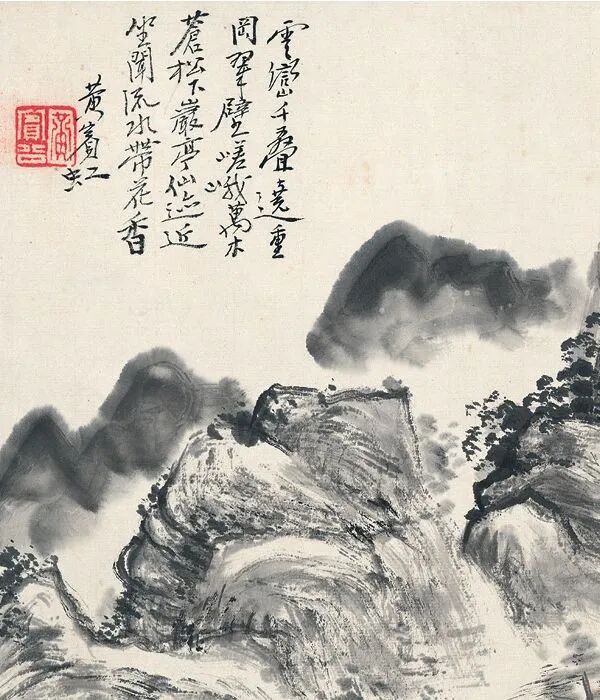 雲千疊遶重
岡翠壁嵯峨萬木
蒼松下巖亭仙迹近
坐聞流水帶花香
黄賓虹